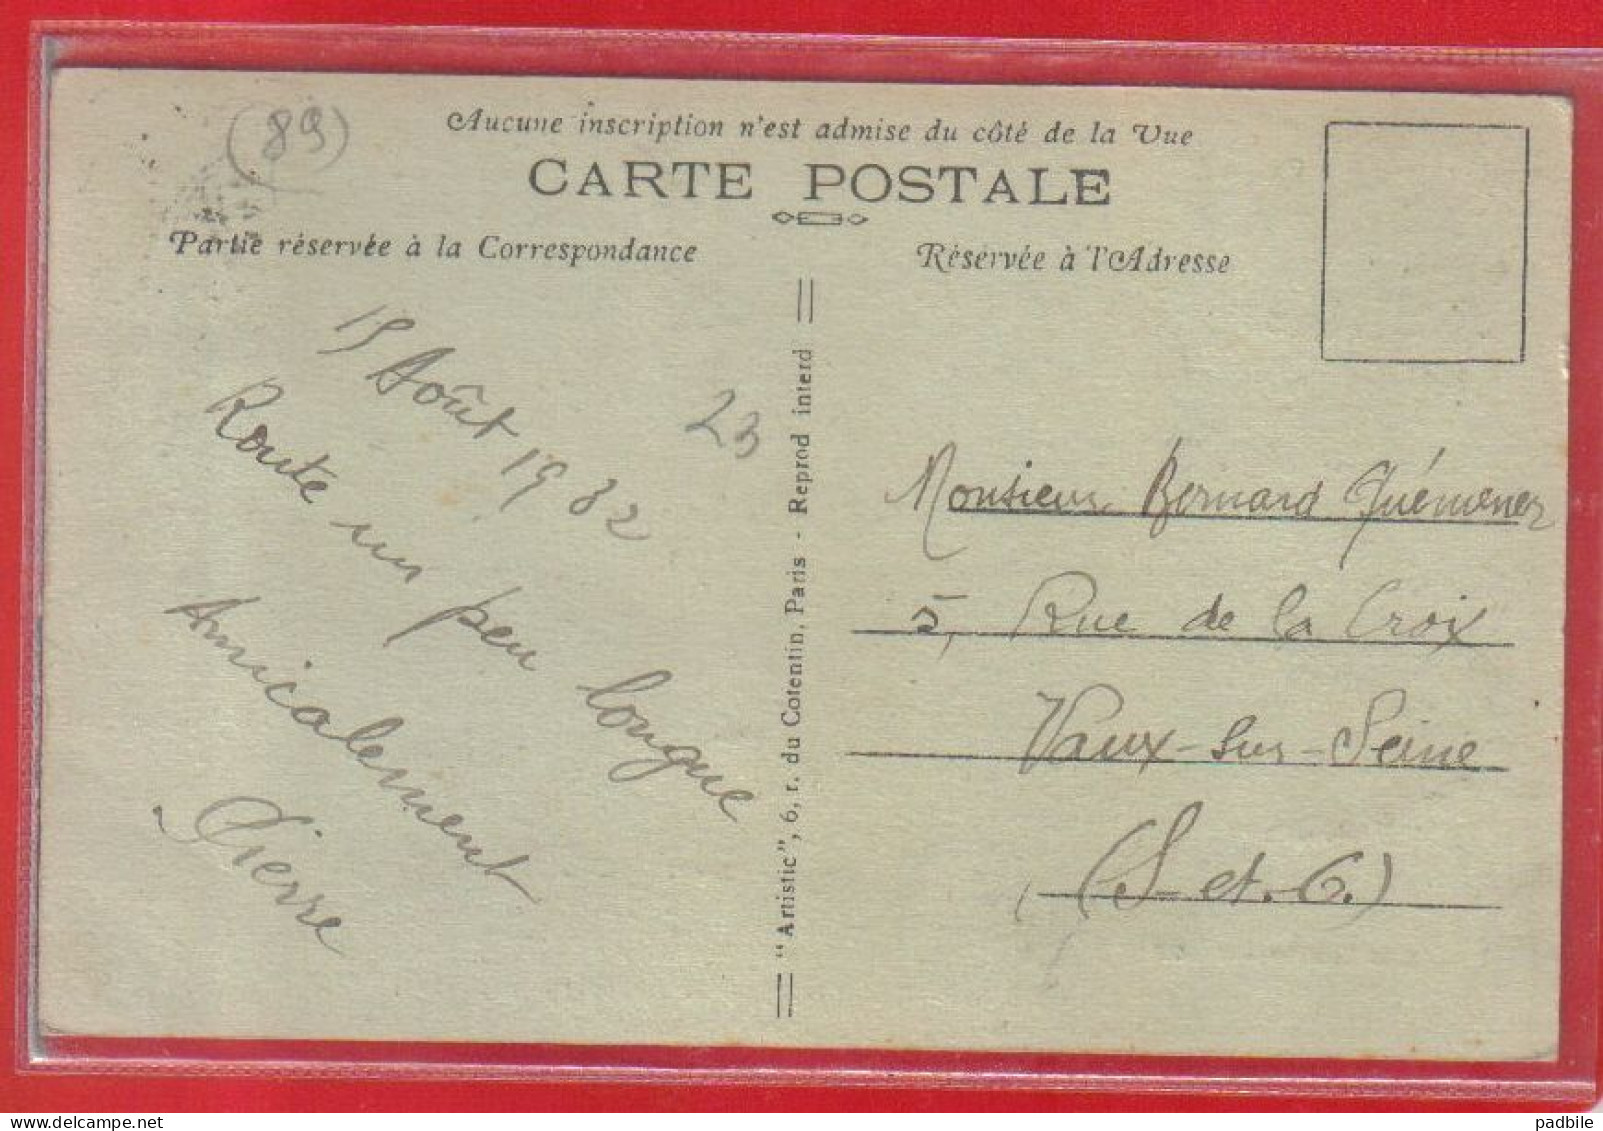 (89)
Aucune inscription n'est admise du côté de la Vue
CARTE POSTALE
Partie réservée à la Correspondance
Réservée à l'Adresse
15 Août 1932
Route un peu longue
Amicalement
Pierre
23
"Artistic", 6, r. du Cotentin, Paris - Reprod interd
Monsieur Bernard Quémener
5, Rue de la Croix
Vaux-sur-Seine
(S-et.-O.)
padbile